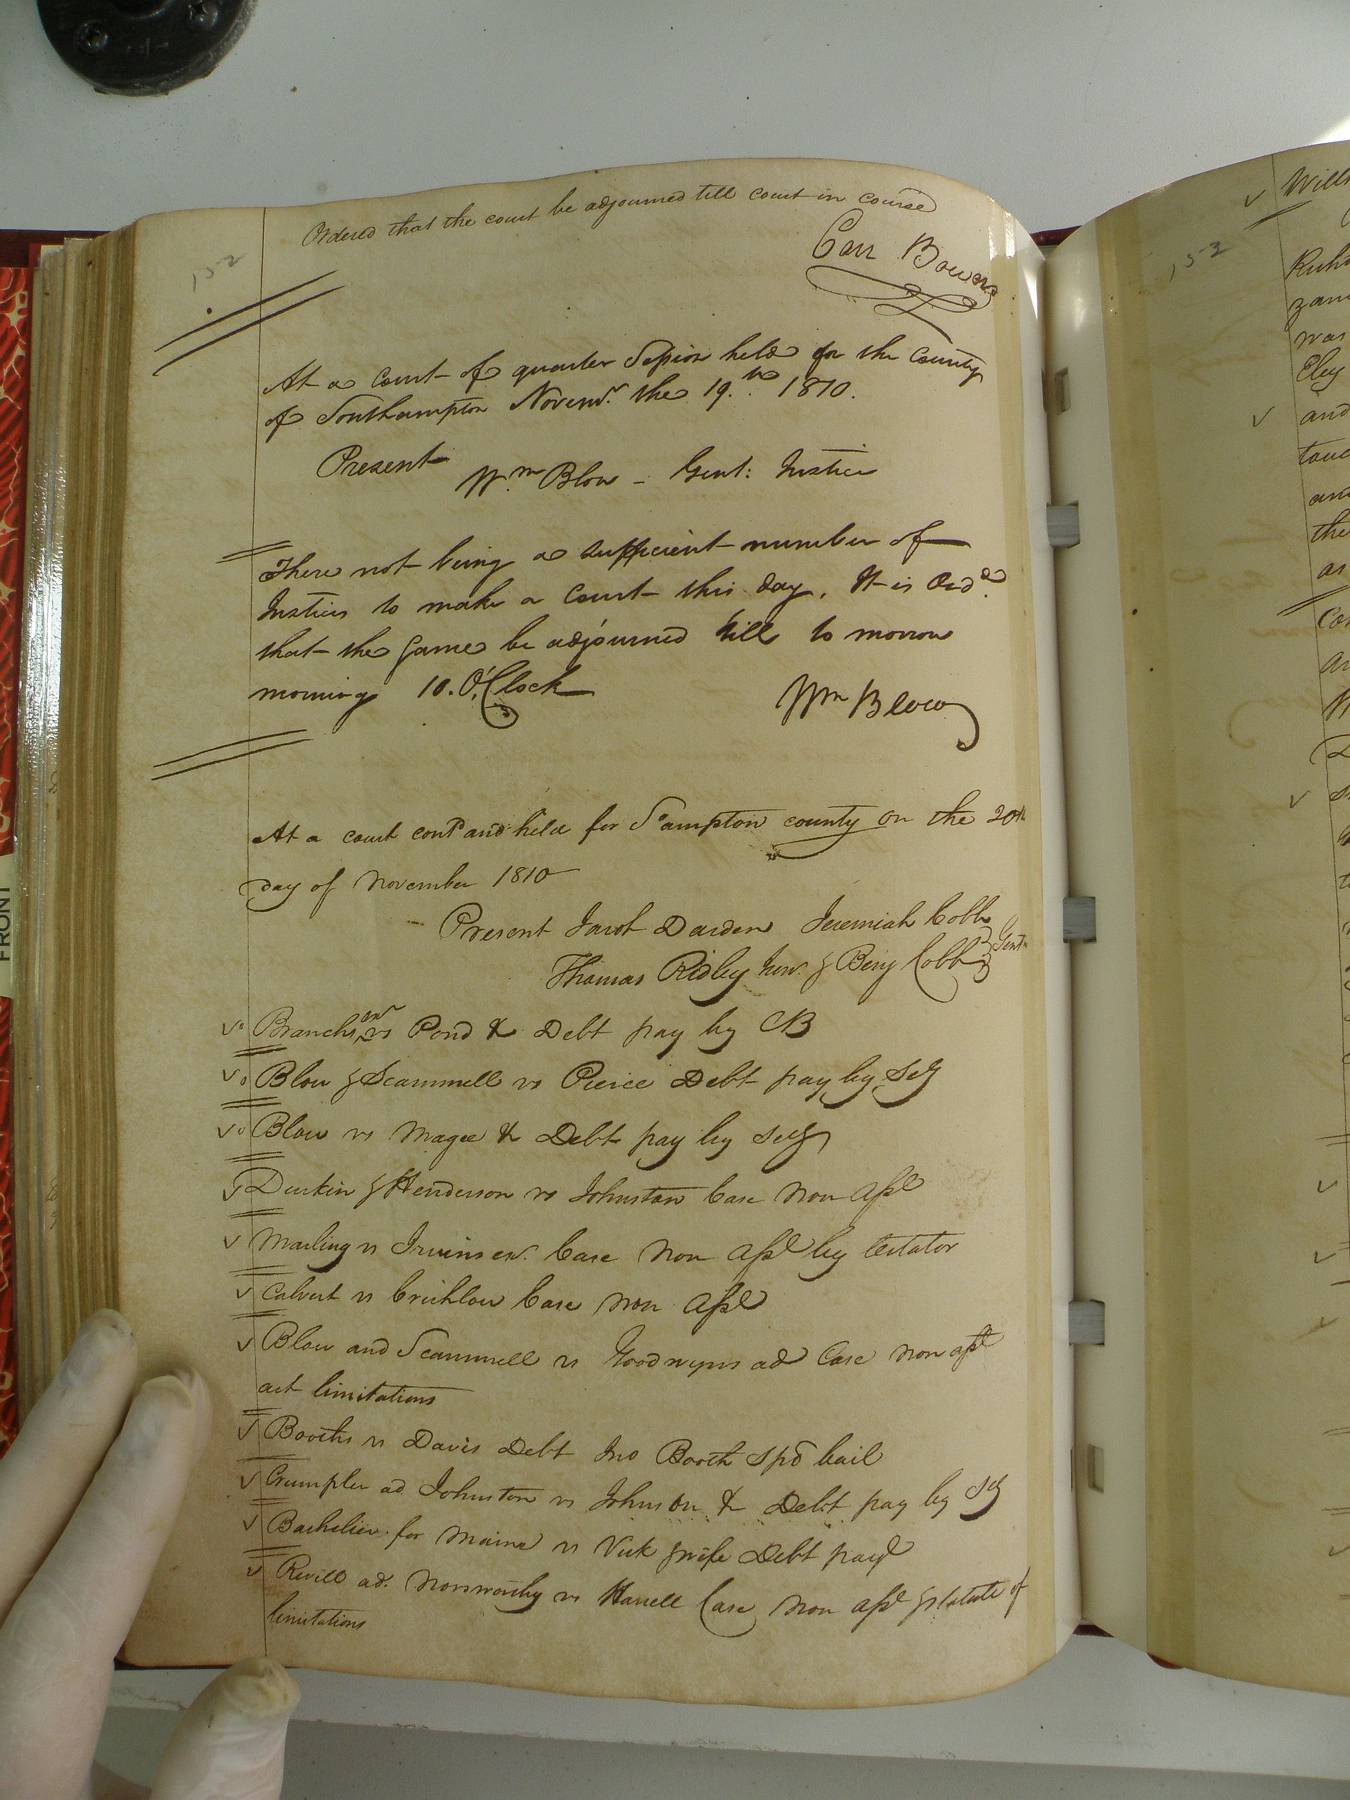 152
Ordered that the court be adjourned till court in course
Carr Bowers
At a Court of quarter Session held for the County
of Southampton Novemr. the 19.th 1810.
Present
Wm. Blow - Gent: Justice
There not being a sufficient number of
Justices to make a Court this day, It is Ord.d
that the same be adjourned till to morrow
morning 10. O'Clock
Wm Blow
At a court contd and held for S'ampton county on the 20th
day of November 1810
Present Jacob Darden Jeremiah Cobb
Thomas Ridley & Benj Cobb Gent
Branchs exr vs Pond & Debt pay by CB
Blow & Scammell vs Pierce Debt pay by self
Blow vs Magee & Debt pay by self
Durkin & Henderson vs Johnston Case non assl
Marling vs Irwins exr. Case non assl by testator
Calvert vs Crichlow Case non assl
Blow and Scammell vs Goodwyns ad Case non assl
act limitations
Booths vs Davis Debt Jno Booth spd bail
Crumpler ad Johnston vs Johnson & Debt pay by self
Bachelier for Maina vs Vick & wife Debt payt
Revill ad. Norsworthy vs Harrell Case non assl & statute of
limitations
153
FRONT